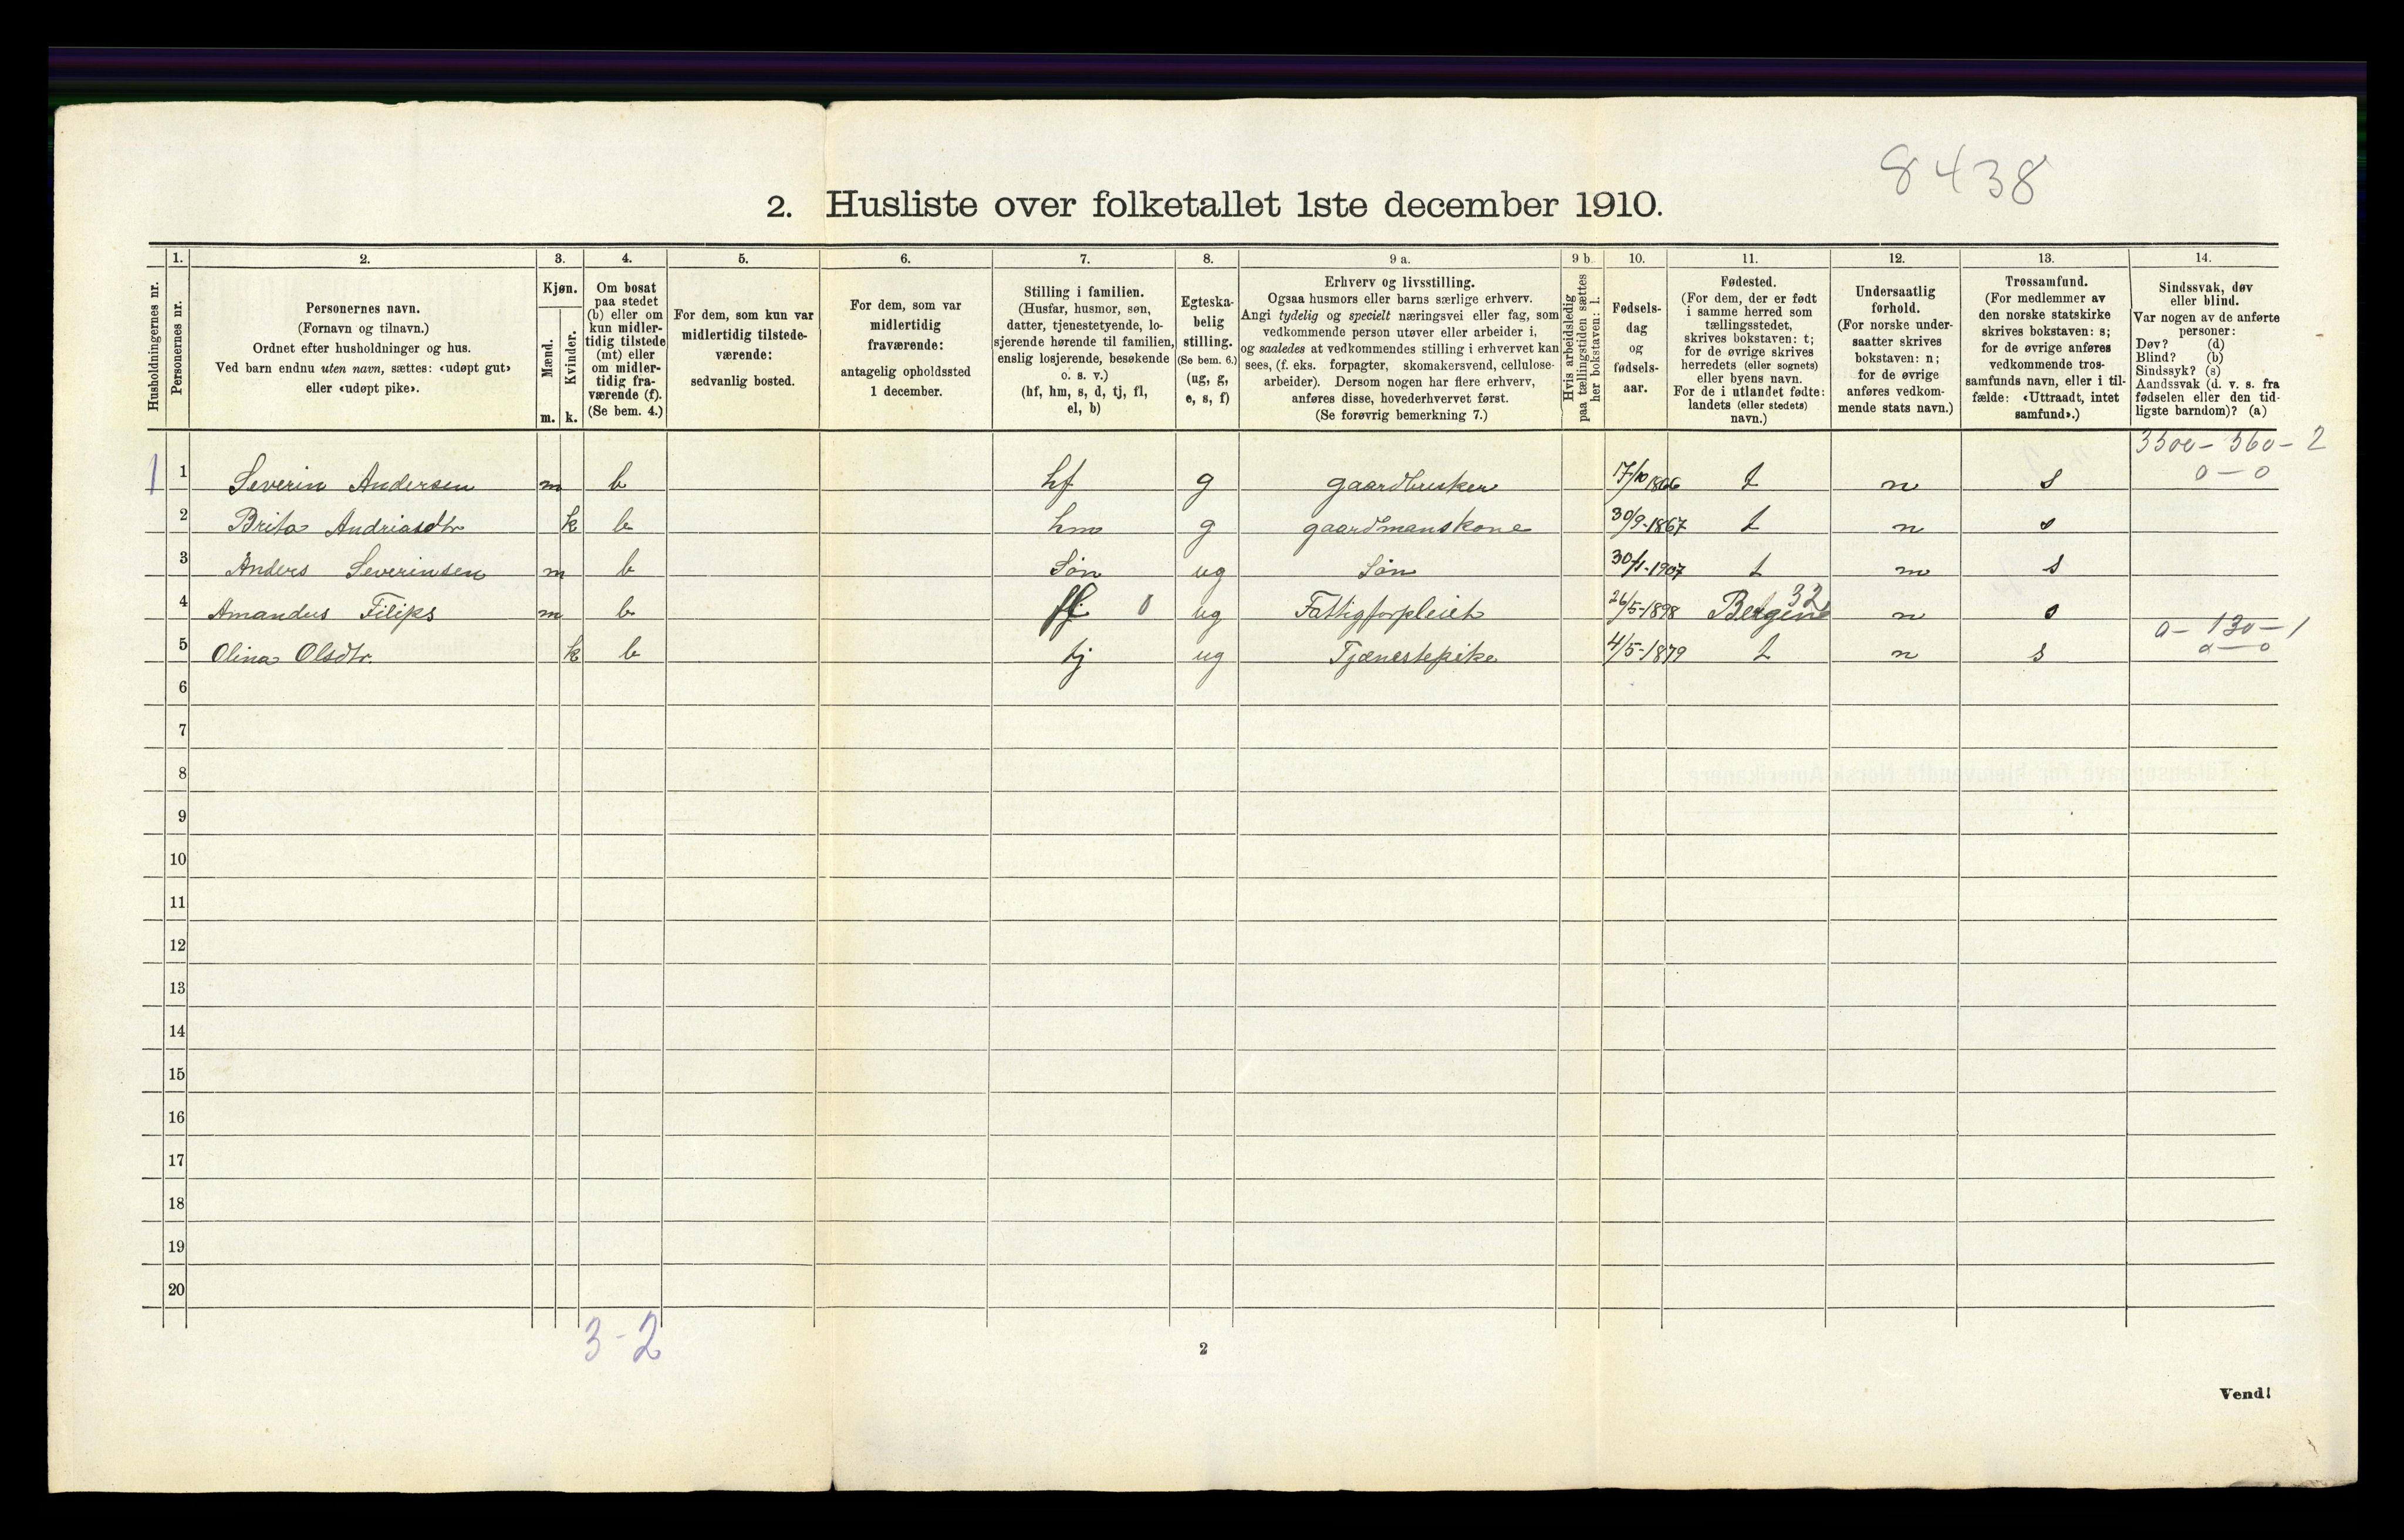 8438
2. Husliste over folketallet 1ste december 1910.
Husholdningernes nr.
1. Personernes nr.
2. Personernes navn. (Fornavn og tilnavn.) Ordnet efter husholdninger og hus. Ved barn endnu uten navn, sættes: «udøpt gut» eller «udøpt pike».
3. Kjøn. Mænd. m. Kvinder. k.
4. Om bosat paa stedet (b) eller om kun midlertidig tilstede (mt) eller om midlertidig fraværende (f). (Se bem. 4.)
5. For dem, som kun var midlertidig tilstedeværende: sedvanlig bosted.
6. For dem, som var midlertidig fraværende: antagelig opholdssted 1 december.
7. Stilling i familien. (Husfar, husmor, søn, datter, tjenestetyende, losjerende hørende til familien, enslig losjerende, besøkende o. s. v.) (hf, hm, s, d, tj, fl, el, b)
8. Egteskabelig stilling. (Se bem. 6.) (ug, g, e, s, f)
9 a. Erhverv og livsstilling. Ogsaa husmors eller barns særlige erhverv. Angi tydelig og specielt næringsvei eller fag, som vedkommende person utøver eller arbeider i, og saaledes at vedkommendes stilling i erhvervet kan sees, (f. eks. forpagter, skomakersvend, cellulosearbeider). Dersom nogen har flere erhverv, anføres disse, hovederhvervet først. (Se forøvrig bemerkning 7.)
9 b. Hvis arbeidsledig paa tællingstiden sættes her bokstaven: l.
10. Fødselsdag og fødselsaar.
11. Fødested. (For dem, der er født i samme herred som tællingsstedet, skrives bokstaven: t; for de øvrige skrives herredets (eller sognets) eller byens navn. For de i utlandet fødte: landets (eller stedets) navn.)
12. Undersaatlig forhold. (For norske undersaatter skrives bokstaven: n; for de øvrige anføres vedkommende stats navn.)
13. Trossamfund. (For medlemmer av den norske statskirke skrives bokstaven: s; for de øvrige anføres vedkommende trossamfunds navn, eller i tilfælde: «Uttraadt, intet samfund».)
14. Sindssvak, døv eller blind. Var nogen av de anførte personer: Døv? (d) Blind? (b) Sindssyk? (s) Aandssvak (d. v. s. fra fødselen eller den tidligste barndom)? (a)
3500 - 560 - 2
1 1 Severin Andersen m b hf g gaardbruker 17/10 1866 t n s 0 - 0
2 Brita Andriasdtr k b hm g gaardmanskone 30/9-1867 t n s
3 Anders Severinsen m b Søn ug Søn 30/1-1907 t n s
4 Amandus Filips m b fl 0 ug Fattigforpleiet 26/5-1898 Bergen 32 n s
0 - 130 - 1
5 Olina Olsdtr. k b tj ug Tjenestepike 4/5-1879 t n s 0 - 0
6
7
8
9
10
11
12
13
14
15
16
17
18
19
20
3-2
2
Vend!